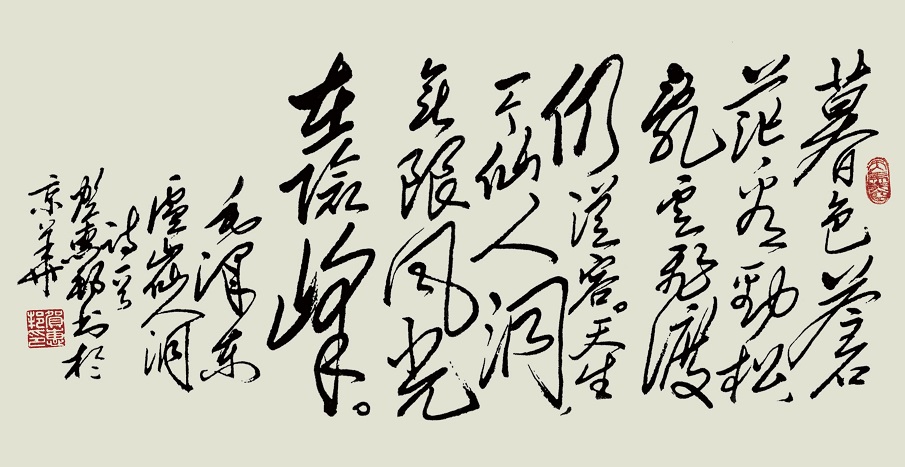 暮色苍
茫看劲松
乱云飞渡
仍从容。天生
一个仙人洞，
无限风光
在险峰。
毛泽东
庐山仙人洞
诗一首
贺惠邦书于
京华
贺惠邦印